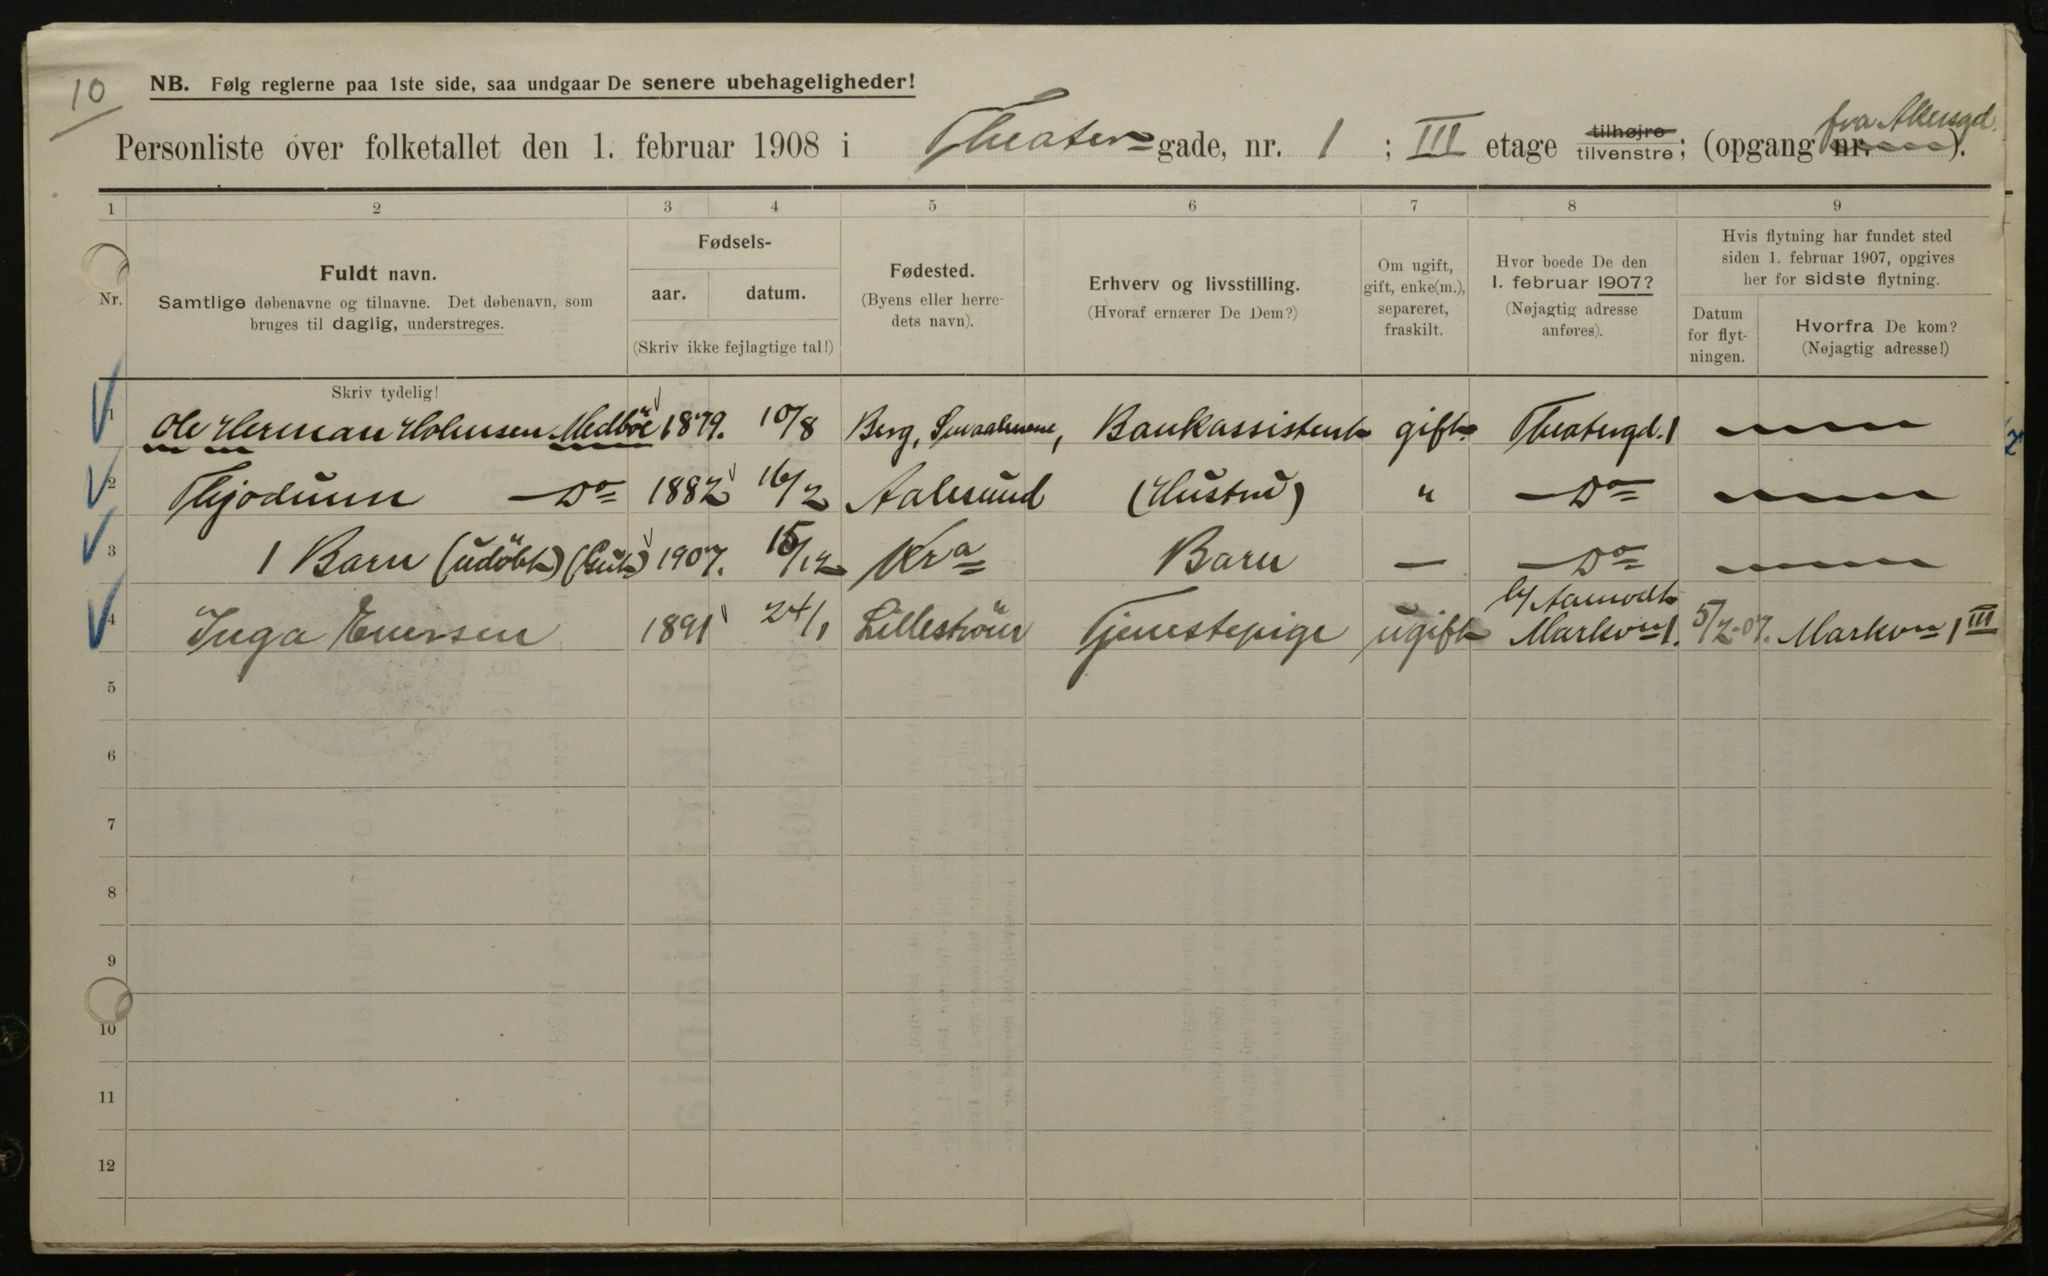 10
NB. Følg reglerne paa 1ste side, saa undgaar De senere ubehageligheder!
Personliste over folketallet den 1. februar 1908 i Theater gade, nr. 1 ; III etage tilhøjre tilvenstre; (opgang nr. fra Akersgd. ).
1 2 3 4 5 6 7 8 9
Nr.
Fuldt navn.
Samtlige døbenavne og tilnavne. Det døbenavn, som
bruges til daglig, understreges.
Skriv tydelig!
Fødsels-
aar. datum.
(Skriv ikke fejlagtige tal!)
Fødested.
(Byens eller herre-
dets navn).
Erhverv og livsstilling.
(Hvoraf ernærer De Dem?)
Om ugift,
gift, enke(m.),
separeret,
fraskilt.
Hvor boede De den
1. februar 1907?
(Nøjagtig adresse
anføres).
Hvis flytning har fundet sted
siden 1. februar 1907, opgives
her for sidste flytning.
Datum
for flyt-
ningen.
Hvorfra De kom?
(Nøjagtig adresse!)
1 Ole Herman Holmsen Medböe 1879. 10/8 Berg, Smaalenene, Bankassistent gift. Theatergd. 1
2 Thjodunn Do 1882 16/2 Aalesund (Hustru) " Do
3 1 Barn (udöbt) (Gut) 1907. 15/12 Kra Barn — Do
4 Inga Eversen 1891 24/1 Lilleström Tjenestepige ugift b/ Aamodt Markvn 1. 5/2-07. Markvn 1 III
5
6
7
8
9
10
11
12